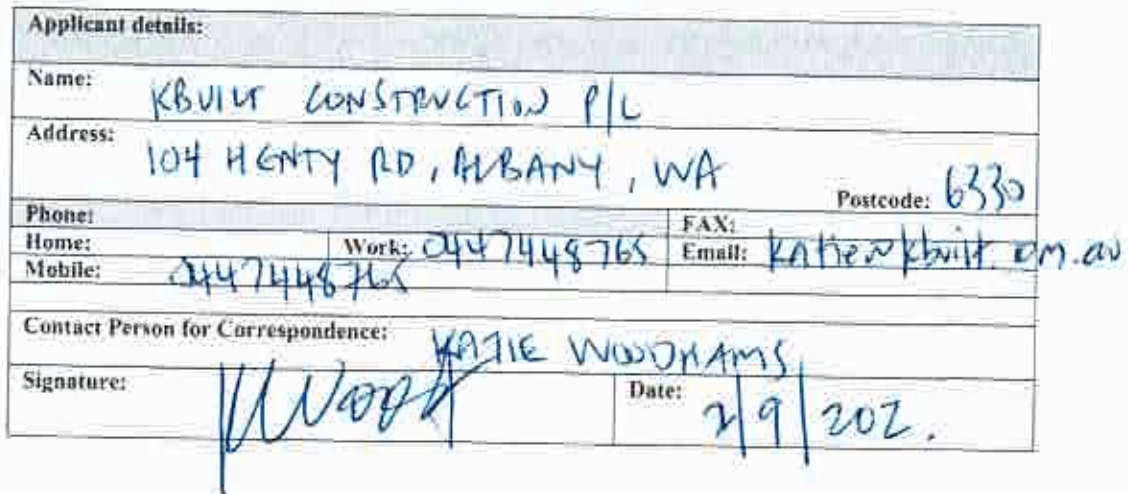 Applicant details:
Name: KBUILT CONSTRUCTION P/L
Address: 104 HENTY RD, ALBANY, WA Postcode: 6330
Phone: FAX:
Home: Work: 0447448765 Email:
Mobile: 0447448765
Contact Person for Correspondence: KATIE WOODHAMS
Signature: Date: 2/9/202.